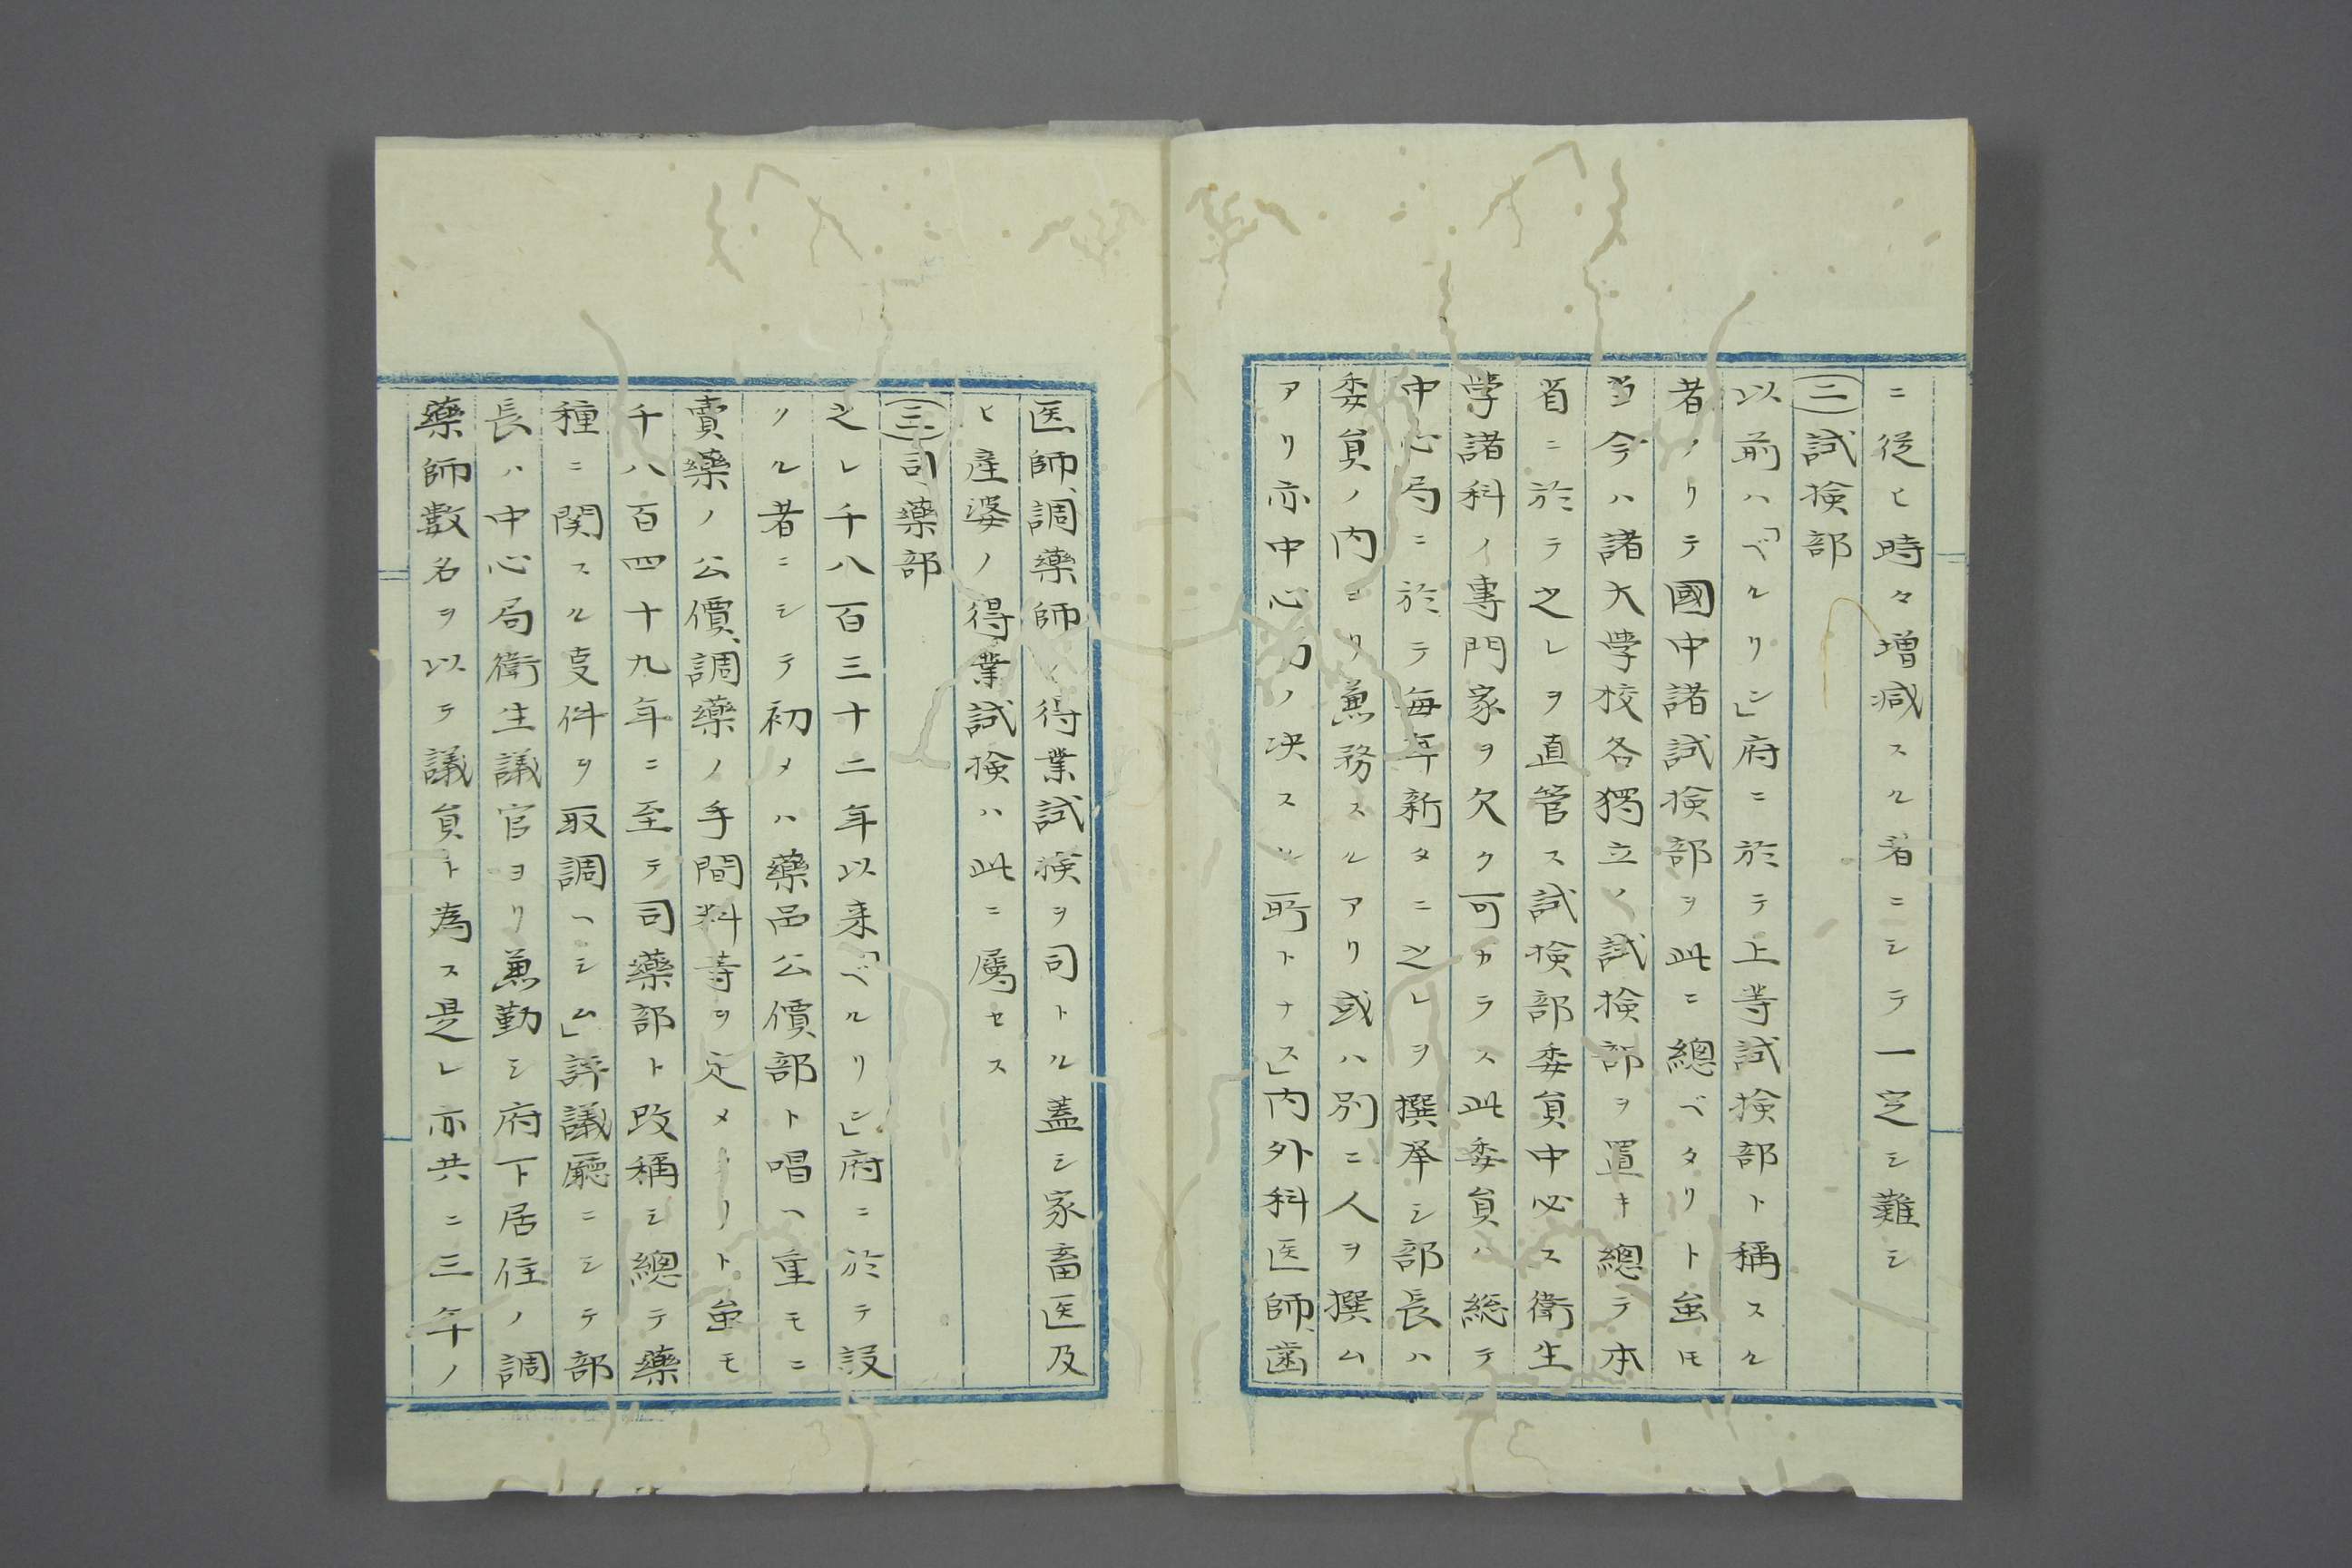 ニ従ヒ時々増減スル者ニシテ一定シ難シ
(二)試検部
以前ハ「ベルリン」府ニ於テ上等試検部ト称スル
者ノリテ國中諸試検部ヲ此ニ總ベタリト虽モ
当今ハ諸大学校各獨立ノ試検部ヲ置キ總テ本
省ニ於テ之レヲ直管ス試検部委員中必ス衛生
学諸科ノ專門家ヲ欠ク可カラス此委員ハ総テ
中心局ニ於テ毎年新タニ之レヲ撰挙シ部長ハ
委員ノ内ヨリ兼務スルアリ或ハ別ニ人ヲ撰ム
アリ亦中心局ノ决スル所トナス」内外科医師、歯
医師、調藥師ノ得業試検ヲ司トル蓋シ家畜医及
ヒ産婆ノ得業試検ハ此ニ屬セス
(三)司藥部
之レ千八百三十二年以来「ベルリン」府ニ於テ設
クル者ニシテ初メハ藥品公價部ト唱ヘ重モニ
賣藥ノ公價、調藥ノ手間料等ヲ定メタリト虽モ
千八百四十九年ニ至テ司藥部ト改稱シ總テ藥
種ニ関スル支件ヲ取調ヘシム」評議廳ニシテ部
長ハ中心局衛生議官ヨリ兼勤シ府下居住ノ調
藥師數名ヲ以テ議員ト為ス是レ亦共ニ三年ノ